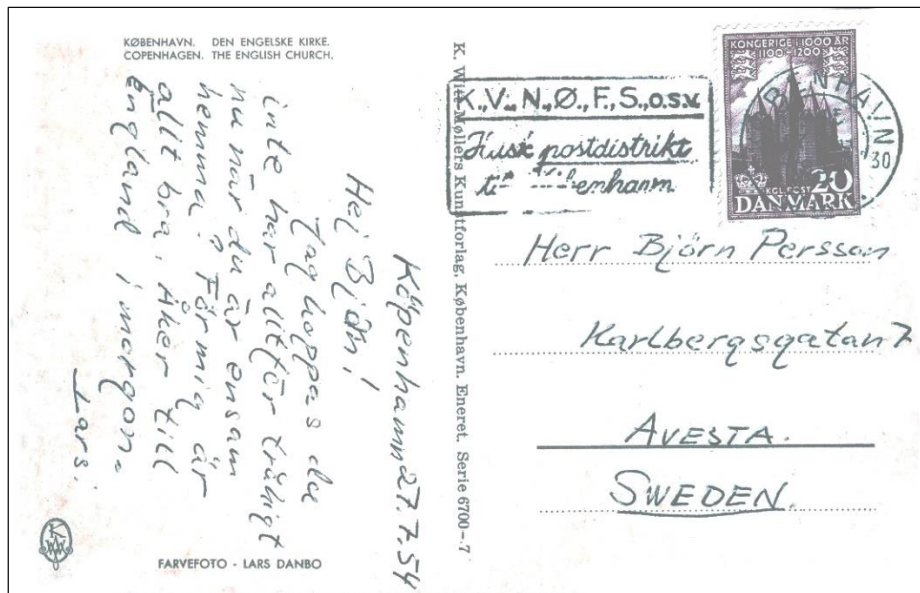 KØBENHAVN. DEN ENGELSKE KIRKE.
COPENHAGEN. THE ENGLISH CHURCH.
Köpenhamn 27.7.54
Hej Björn!
Jag hoppas du
inte har alltför tråkigt
nu när du är ensam
hemma? För mig är
allt bra, åker till
England i morgon.
Lars.
FARVEFOTO - LARS DANBO
K. Witt-Møllers Kunstforlag, København. Eneret. Serie 6700-7
K.,V.,N.,Ø.,F.,S.,O.S.V.
Husk postdistrikt
København
KONGERIGE I 1000 ÅR
1100-1200
KGL. POST 20
DANMARK
30
Herr Björn Persson
Karlbergsgatan 7
AVESTA.
SWEDEN.